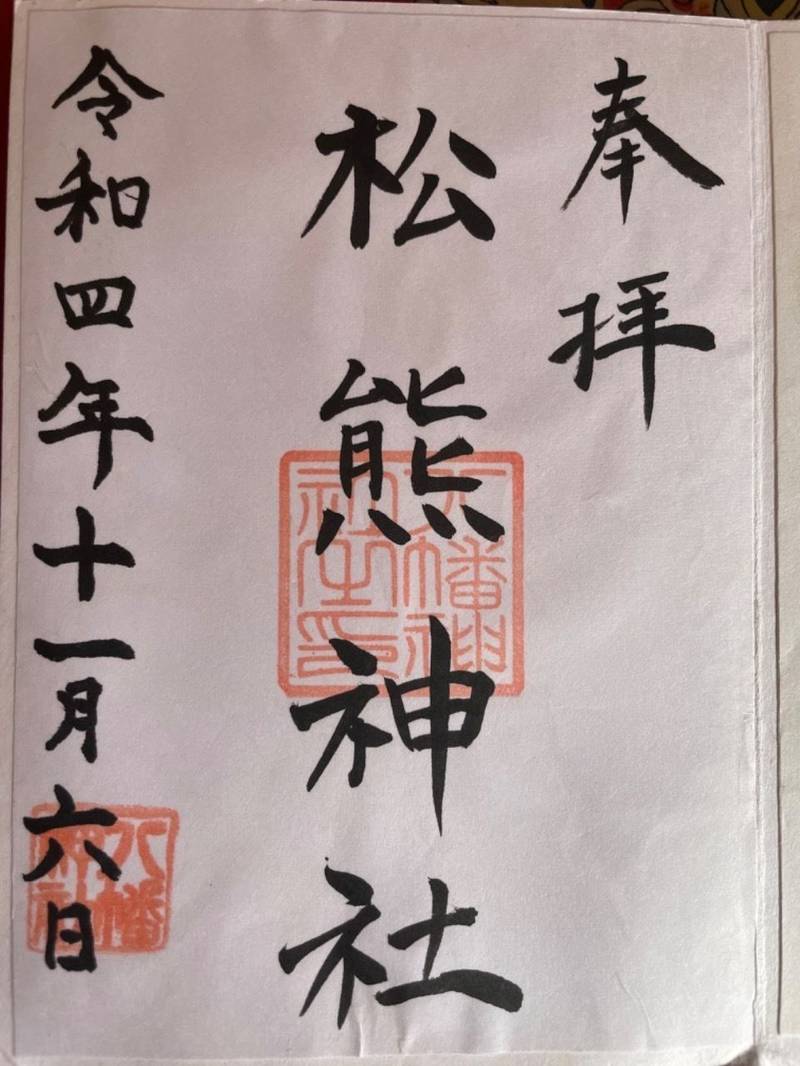 奉拝
松熊神社
八幡神社之印
令和四年十一月六日
八幡神社